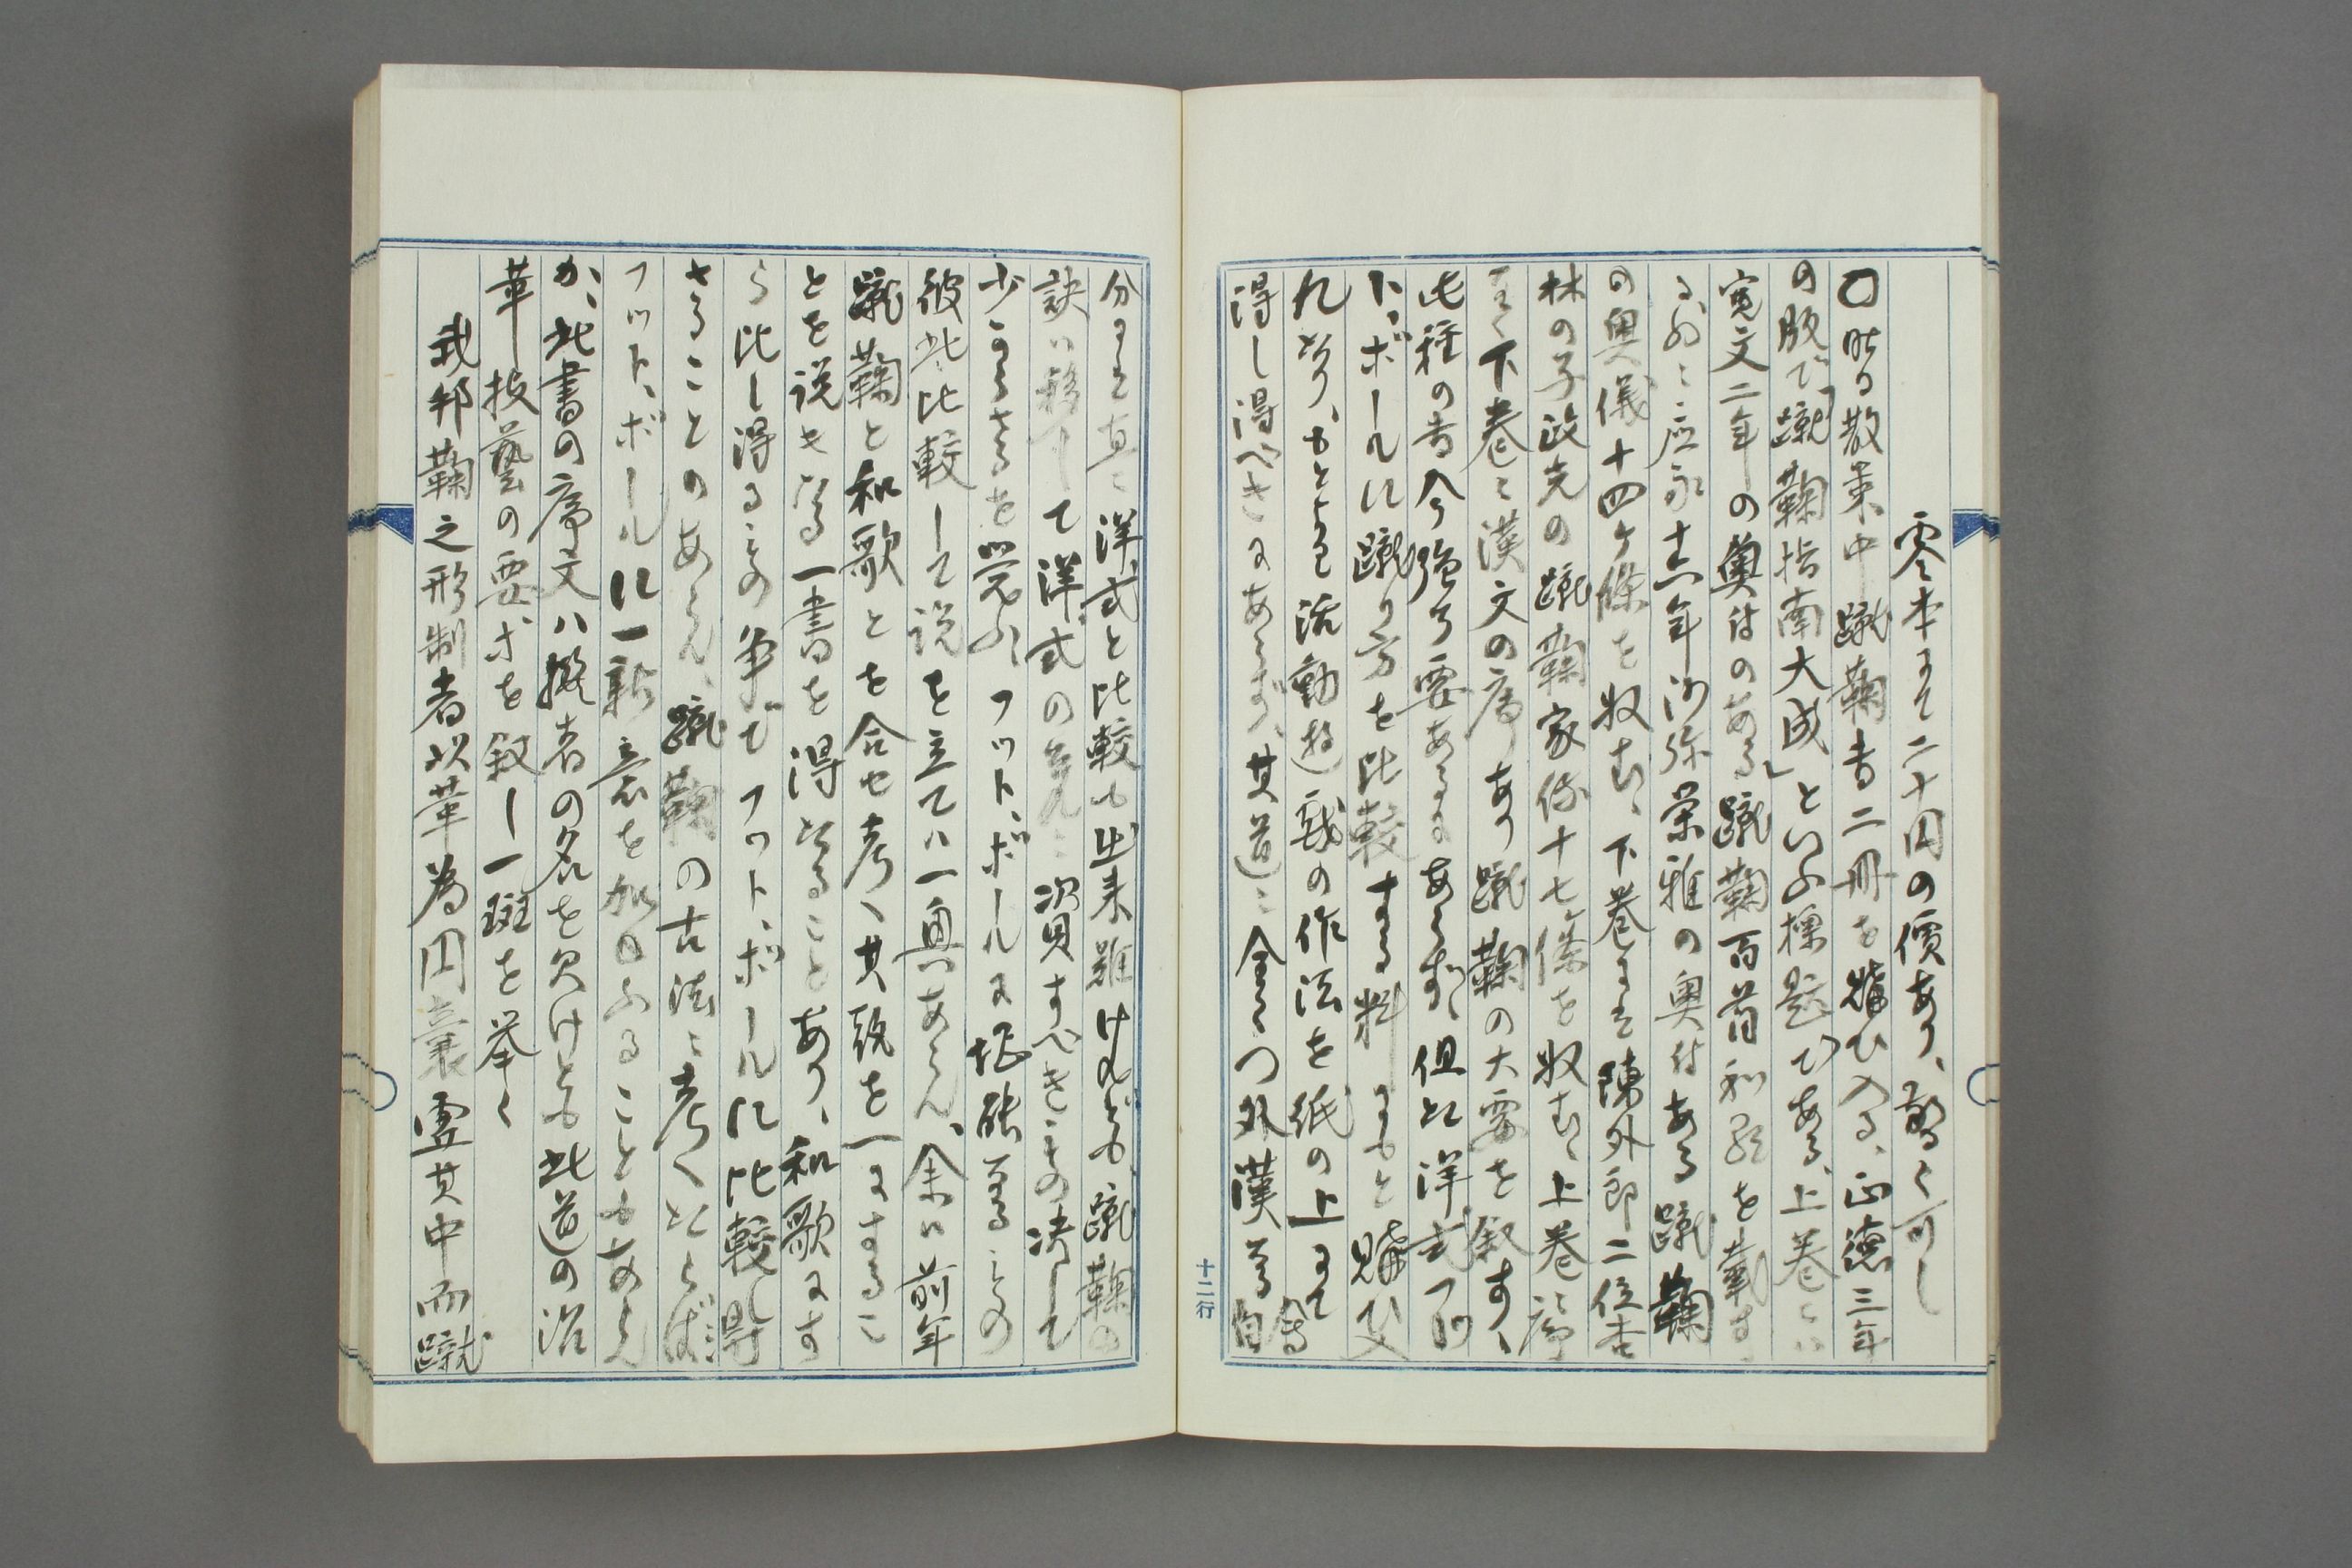 零本にて二十円の價あり、驚く可し
〇昨日散策中蹴鞠書二冊を購ひ入る、正徳三年
の版で「蹴鞠指南大成」といふ標題である、上巻には
寛文二年の奥付のある蹴鞠百首和歌を載す
応永十六年沙弥栄雅の奥付ある蹴鞠
の奥儀十四ヶ條を収む、下巻には陳外郎二位杏
林の子政光の蹴鞠家伝十七條を収む、上巻序
なく下巻に漢文の序あり蹴鞠の大要を叙す、
此種の書今強て要あるにあらず、但し洋式フツ
ト、ボールに蹴り方を比較する料にもと購ひ入
れたり、もとより活動遊戯の作法を紙の上にて
得し得べきにあらず、其道に全くの外漢なる自
余等
十二行
分には直に洋式と比較も出来難けれども、蹴鞠の
訣は移して洋式の覚に資すべきもの決して
少なからざるを覚ふ、フット、ボールに堪能なるもの
彼此比較して説を立ては一興あらん、余は前年
蹴鞠と和歌とを合せ考へ其致を一にするこ
とを説きたる一書を得たることあり、和歌にす
ら比し得るもの争でフット、ボールに比較し得
ざることのあらん、蹴鞠の古法に考へたらば
フット、ボールに一新意を加ふることもあらん
か、此書の序文は撰者の名を欠けとも此道の沿
革技藝の要求を叙し一斑を挙く
我邦鞠之形制者以革為円嚢虚其中而蹴